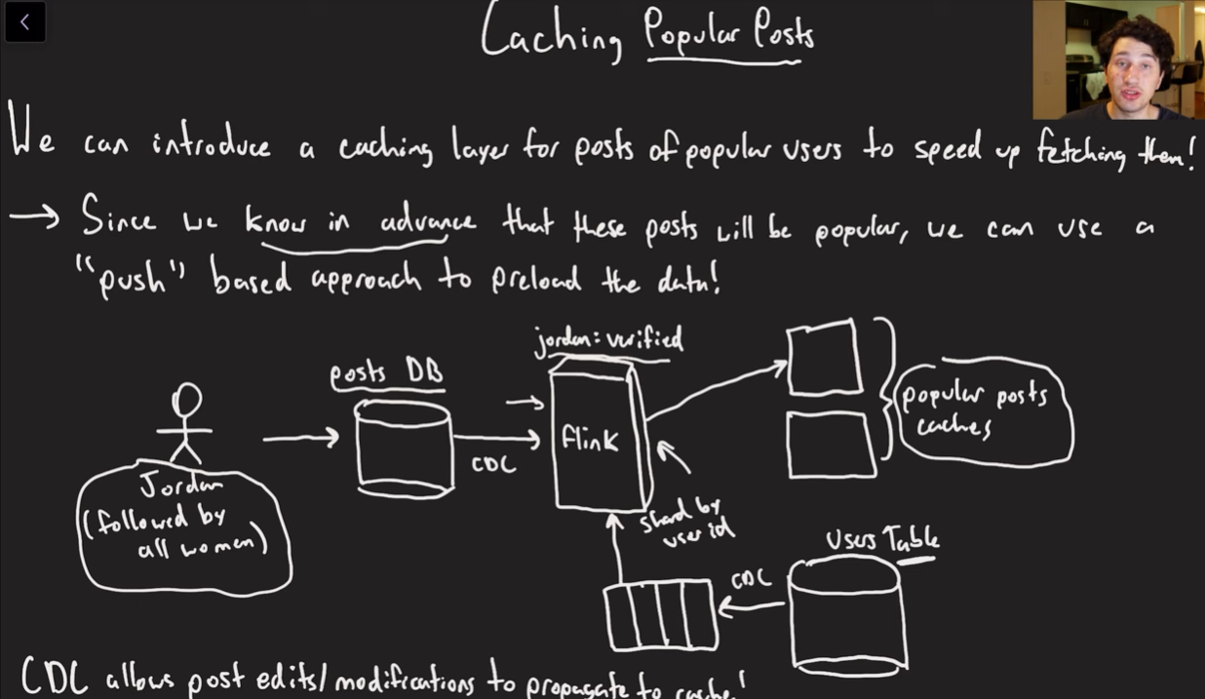 Caching Popular Posts
We can introduce a caching layer for posts of popular users to speed up fetching them!
→ Since we know in advance that these posts will be popular, we can use a
"push" based approach to preload the data!
jordan: verified
posts DB
flink
CDC
popular posts
caches
Jordan
(followed by
all women)
shard by
user id
Users Table
CDC
CDC allows post edits/modifications to propagate to cache!